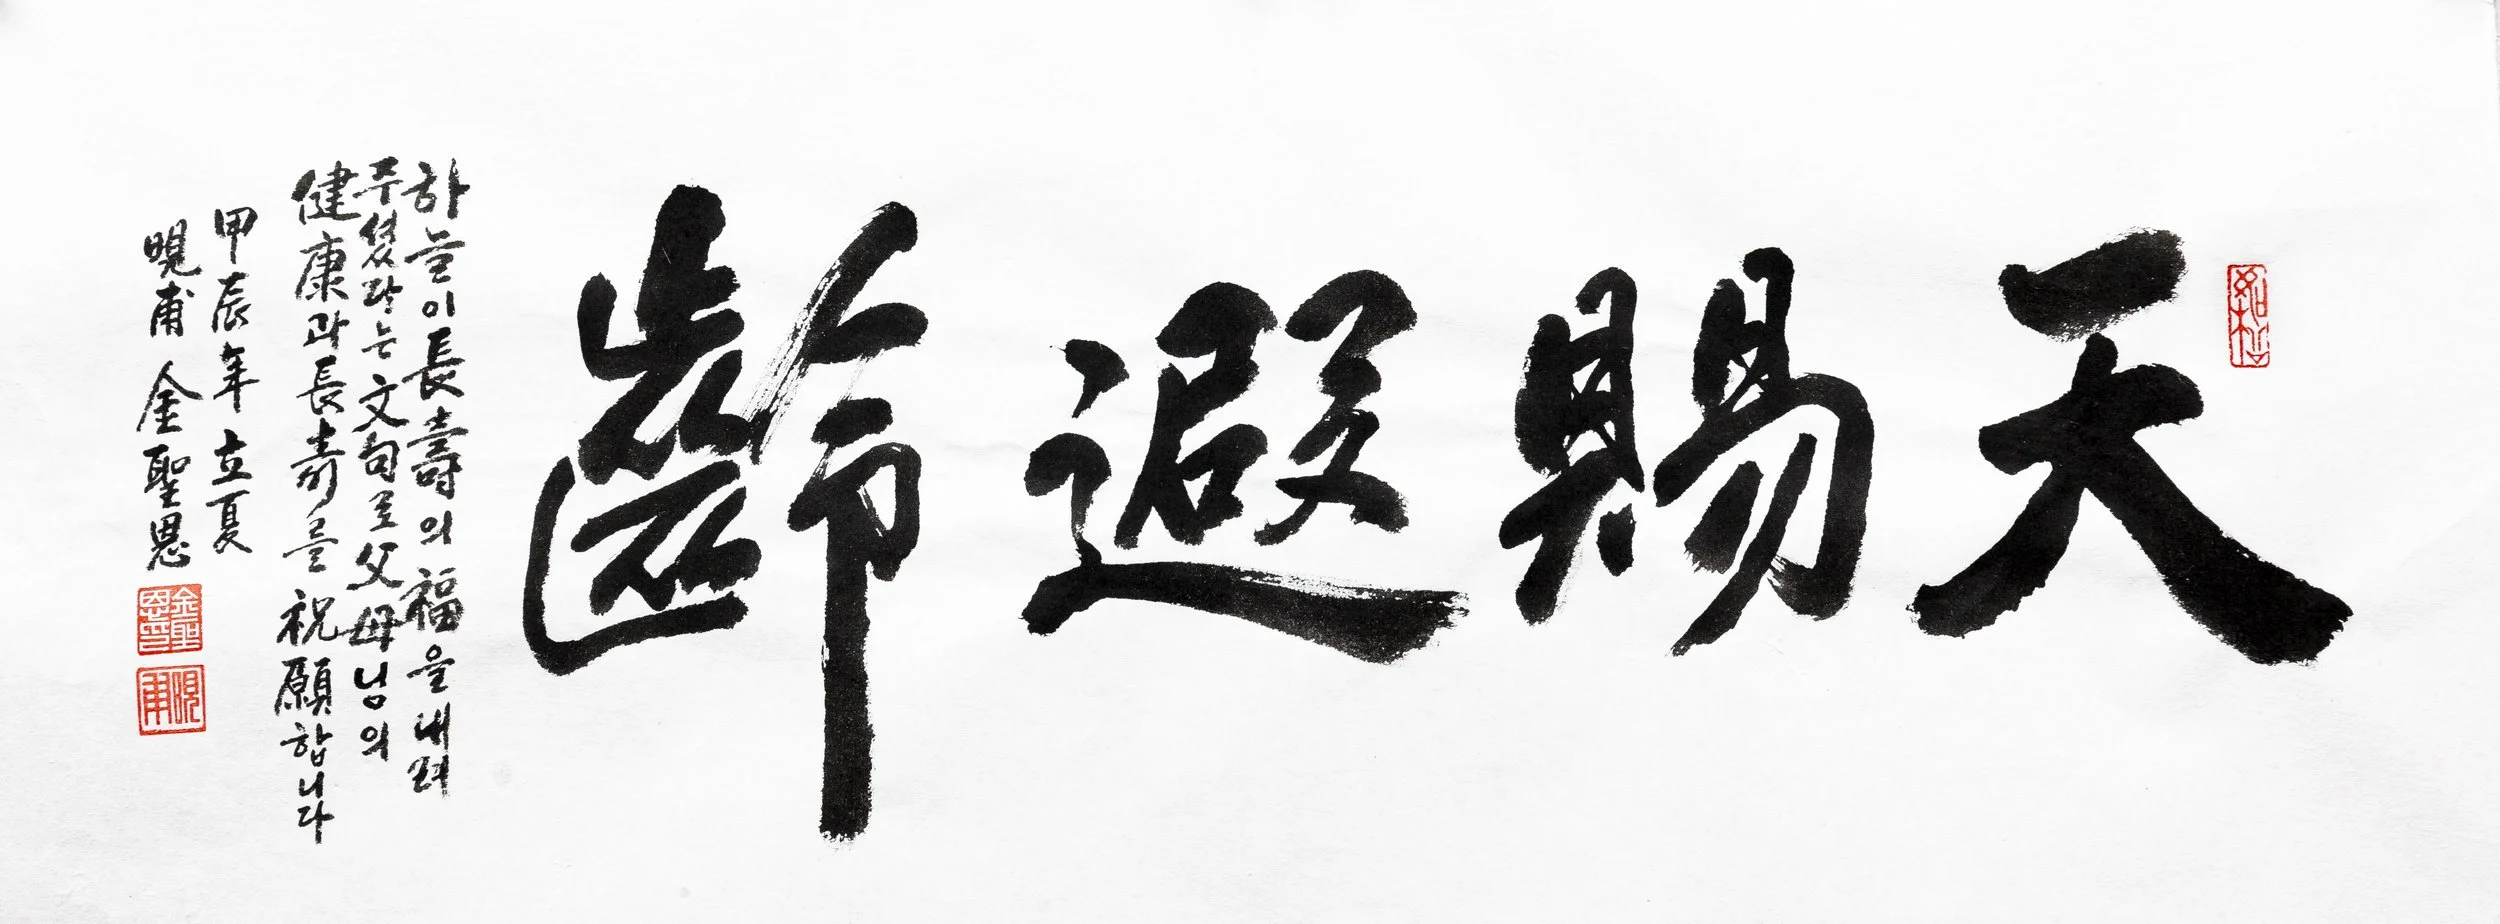 天賜遐齡
하늘이 長壽의 福을 내려
주셨다는 文句로 父母님의
健康과 長壽를 祝願합니다
甲辰年 立夏
晛甫 金聖恩
金聖恩印
晛甫